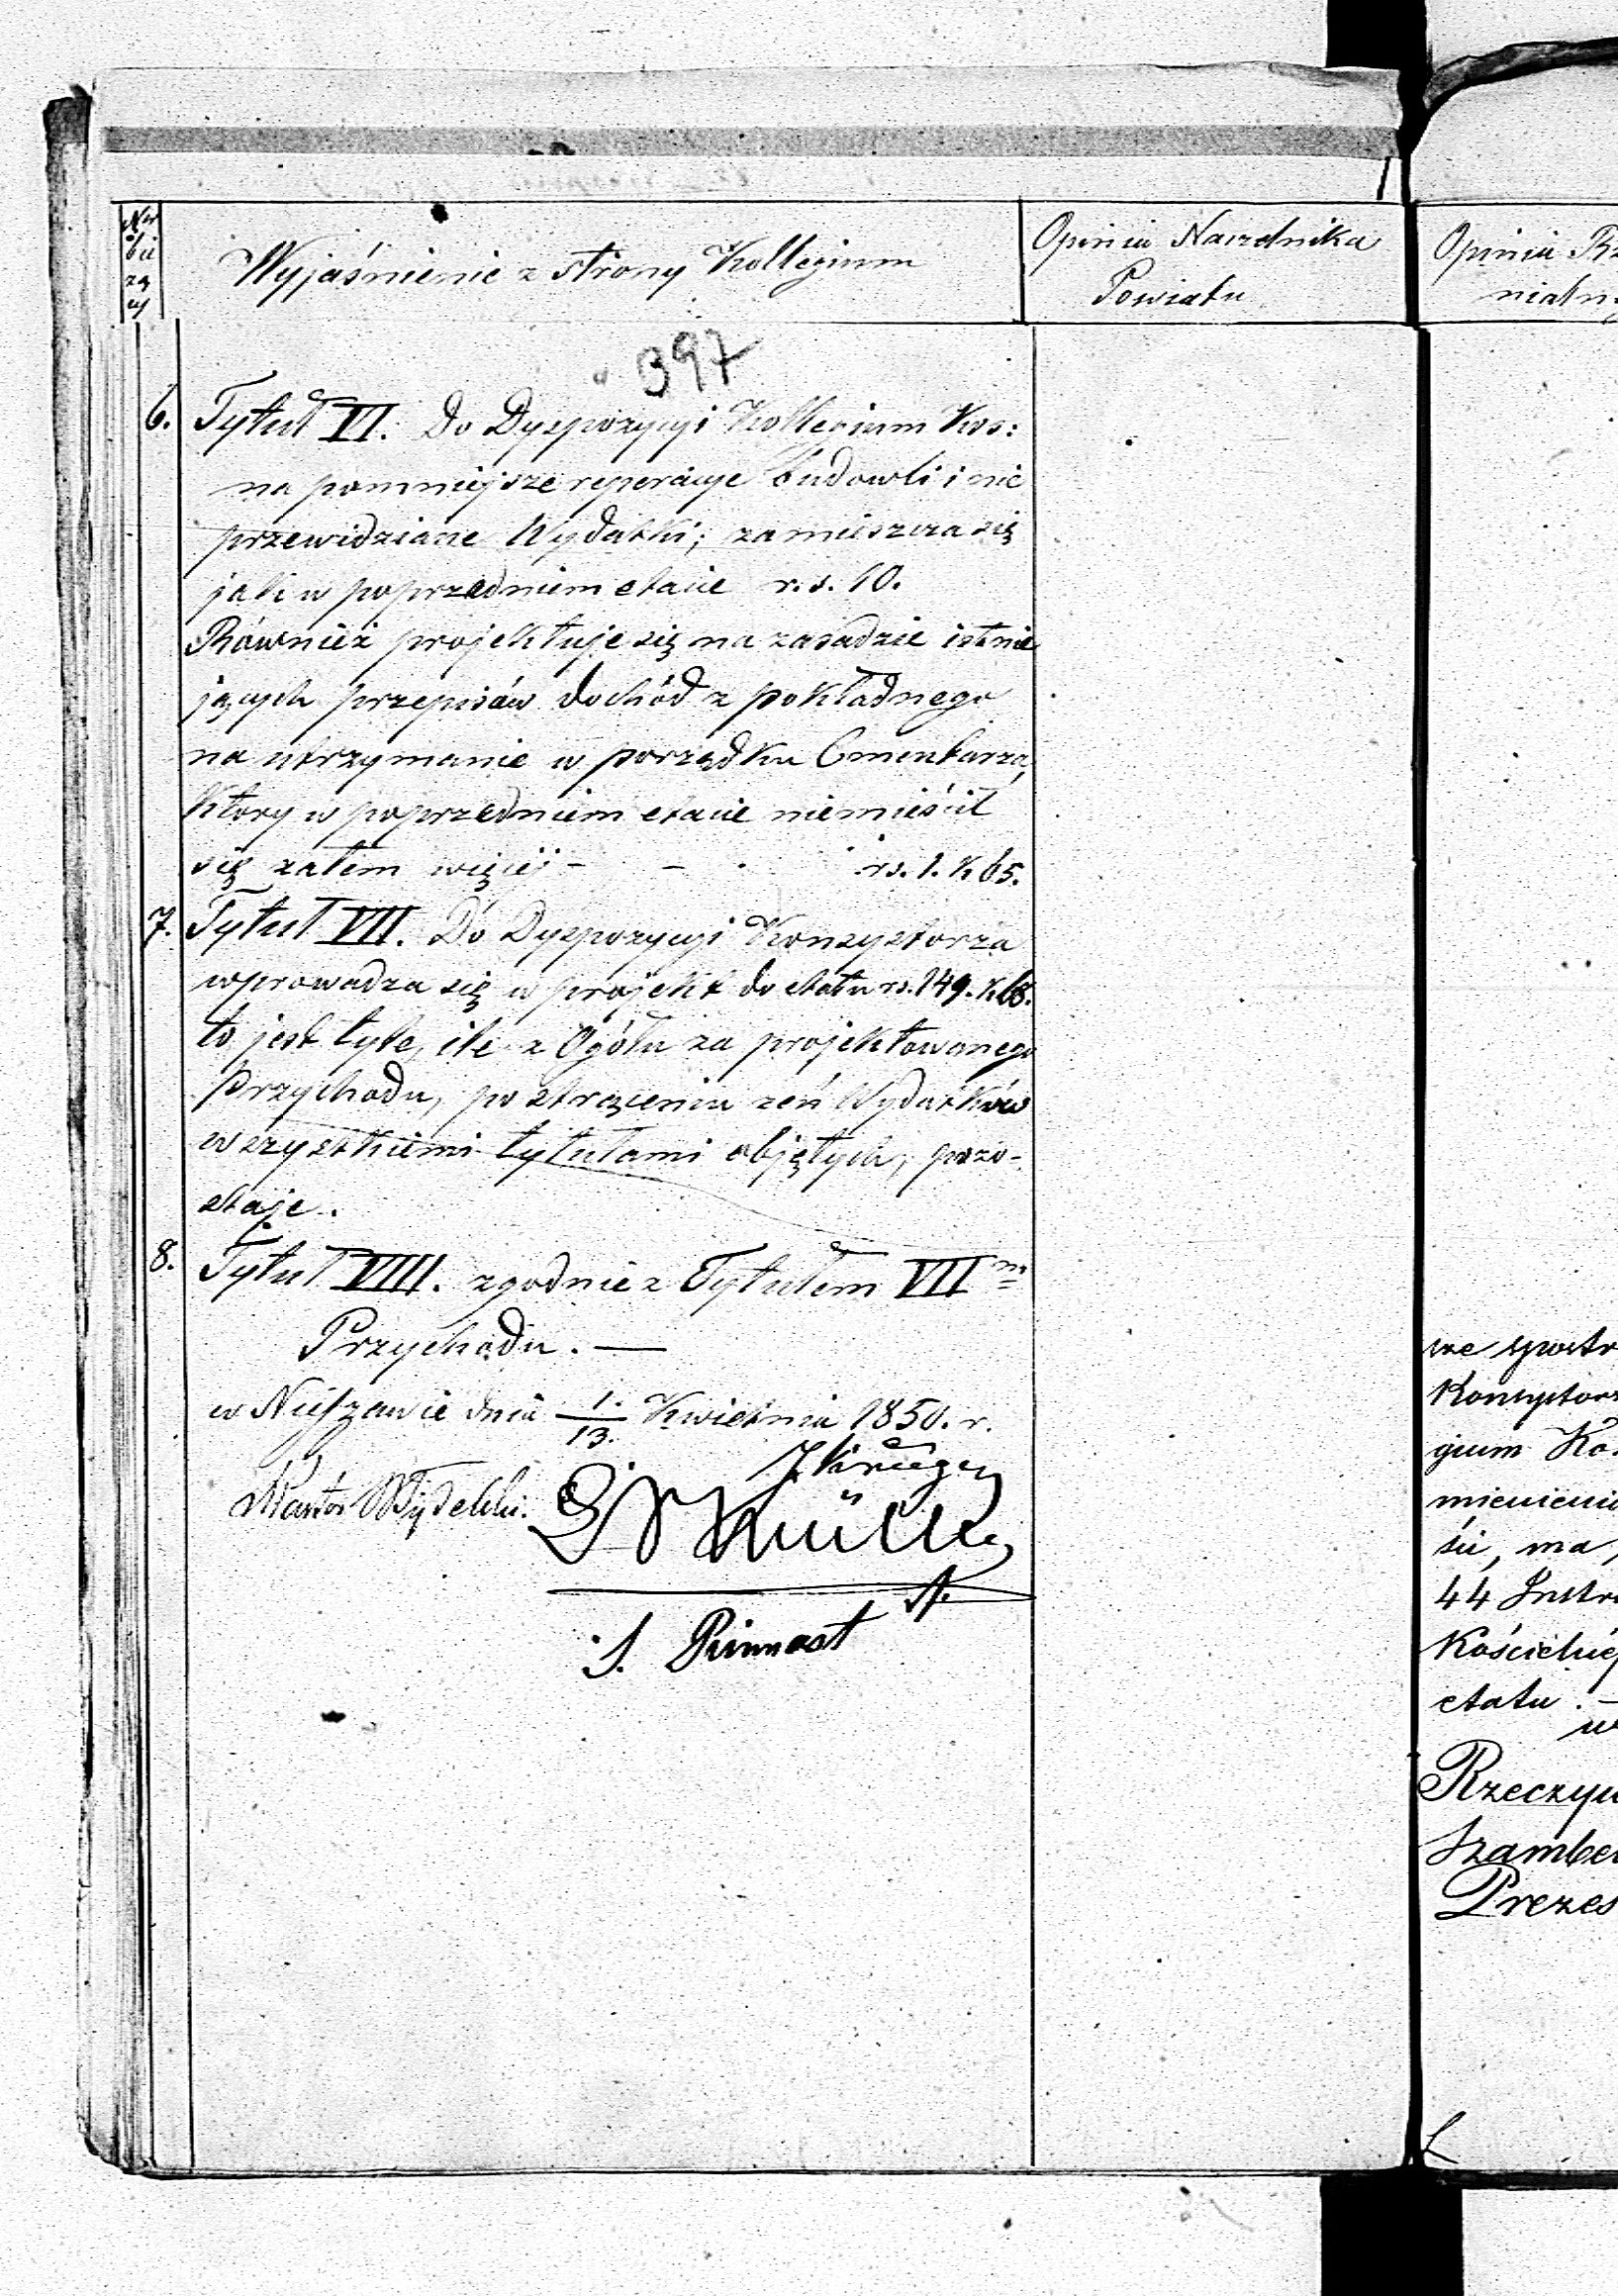 Nr
bie
żą
cy
Wyjaśnienie z strony Kollegium
Opinia Naczelnika
Powiatu
Opinia Rz
nialn
397
6. Tytuł VI. Do Dyspozycyi Kollegium Kos:
na pomniejsze reperacye budowli i nie
przewidziane Wydatki; zamieszcza się
jak w poprzedniem etacie r.s. 10.
Również projektuje się na zasadzie istnie
jących przepisów dochód z pokładnego
na utrzymanie w porządku Cmentarza,
który w poprzedniem etacie niemieścił
się zatem więcéj - - . rs. 1. k 65.
7. Tytuł VII. Do Dyspozycyi Konsystorza
wprowadza się w projekt do etatu rs. 149. k. 68.
to jest tyle, ile z Ogółu za projektowanego
Przychodu, po strąceniu zeń Wydatków
wszystkiemi tytułami objętych, pozo-
staje.
8. Tytuł VIII. zgodnie z Tytułem VII m
Przychodu. —
w Nieszawie dnia 1./13. Kwietnia 1850. r.
Pastor
J. Krüger
S.
44 Instr
Kościelnéj
etatu. —
w
Rzeczyw
Szambel
Prezes